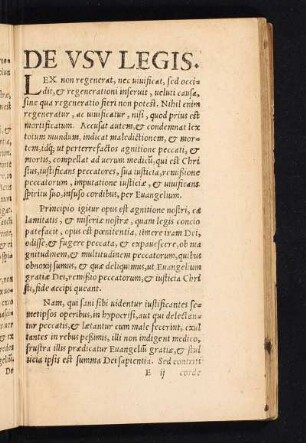 DE VSV LEGIS.
LEX non regenerat, nec uiuificat, sed occi-
dit, & regenerationi inseruit, ueluti causa,
sine qua regeneratio fieri non potest. Nihil enim
regeneratur, ac uiuificatur, nisi, quod prius est
mortificatum. Accusat autem, & condemnat lex
totum mundum, indicat maledictionem, & mor-
tem, idq; ut perterrefactos agnitione peccati, &
mortis, compellat ad uerum medicũ, qui est Chri
stus, iustificans peccatores, sua iusticia, remissione
peccatorum, imputatione iusticiæ, & uiuificans
spiritu suo, infuso cordibus, per Euangelium.
Principio igitur opus est agnitione nostri, ca
lamitatis, & miseriæ nostræ, quam legis concio
patefacit, opus est pœnitentia, timere iram Dei,
odisse, & fugere peccata, & expauescere, ob ma
gnitudinem, & multitudinem peccatorum, quibus
obnoxij sumus, & quæ deliquimus, ut Euangelium
gratiæ Dei, remissio peccatorum, & iusticia Chri
sti, fide accipi queant.
Nam, qui sani sibi uidentur iustificantes se-
metipsos operibus, in hypocrisi, aut qui delectan-
tur peccatis, & lætantur cum male fecerint, exul
tantes in rebus peßimis, illi non indigent medico,
frustra illis prædicatur Euangeliũ gratiæ, & stul
ticia ipsis est summa Dei sapientia. Sed contriti
E ij corde